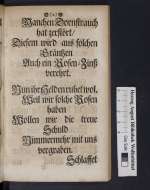 Manchen Dornstrauch
hat zerstört/
Diesem wird aus solchen
Gräntzen
Auch ein Rosen-Zinß
verehrt.
Nun ihr Helden ruhet wol,
Weil wir solche Rosen
haben
Wollen wir die treue
Schuld
Nimmermehr mit uns
vergraben.
Schlaffet
Herzog August Bibliothek Wolfenbüttel